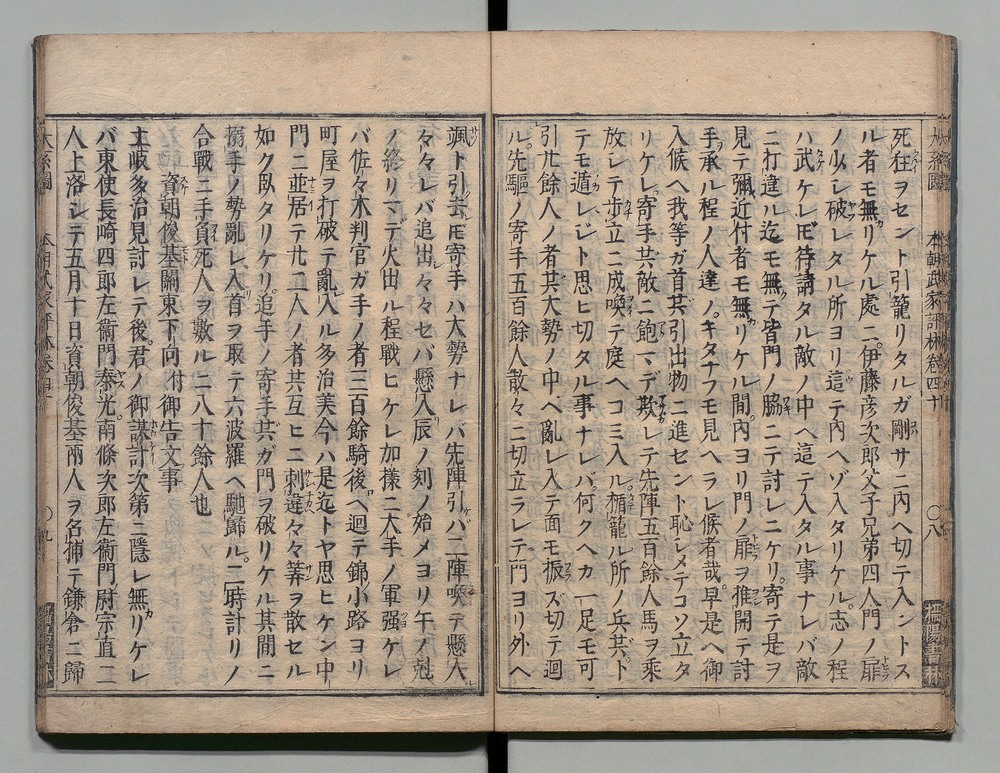 死在ヲセント引籠リタルガ剛サニ内ヘ切テ入ントス
ル者モ無リケル處ニ伊藤彦次郎父子兄弟四人門ノ扉
ノ少シ破レタル所ヨリ這テ内ヘゾ入タリケル志ノ程
ハ武ケレ𪜈待請タル敵ノ中ヘ這テ入タル事ナレバ敵
ニ打違ル迄モ無テ皆門ノ脇ニテ討レニケリ寄手是ヲ
見テ彌近付者モ無リケル間内ヨリ門ノ扉ヲ推開テ討
手承ル程ノ人達ノキタナフモ見ヘラレ候者哉早是ヘ御
入候ヘ我等ガ首共引出物ニ進セント恥シメテコソ立タ
リケレ寄手共敵ニ飽マデ欺レテ先陣五百餘人馬ヲ乘
放レテ歩立ニ成喚テ庭ヘコミ入ル楯籠ル所ノ兵共ト
テモ遁レジト思ヒ切タル事ナレバ何クヘカ一足モ可
引廿餘人ノ者共大勢ノ中ヘ亂レ入テ面モ振ズ切テ迴
ル先驅ノ寄手五百餘人散々ニ切立ラレテ門ヨリ外ヘ
本朝武家評林卷四十
〇八
颯ト引去𪜈寄手ハ大勢ナレバ先陣引バ二陣喚テ懸入
々々レバ追出々々セバ懸入辰ノ刻ノ始メヨリ午ノ尅
ノ終リマデ火出ル程戰ヒケレ加樣ニ大手ノ軍强ケレ
バ佐々木判官ガ手ノ者三百餘騎後ヘ迴テ錦小路ヨリ
町屋ヲ打破テ亂入ル多治美今ハ是迄トヤ思ヒケン中
門ニ並居テ廿二人ノ者共互ヒニ刺違々々筭ヲ散セル
如ク臥タリケリ追手ノ寄手共ガ門ヲ破リケル其間ニ
搦手ノ勢亂レ入首ヲ取テ六波羅ヘ馳歸ル二時計リノ
合戰ニ手負死人ヲ數ルニ二八十餘人也
資朝俊基關東下向付御告文事
土岐多治見討レテ後君ノ御謀計次第ニ隱レ無リケレ
バ東使長崎四郎左衞門泰光南條次郎左衞門尉宗直二
人上洛シテ五月十日資朝俊基兩人ヲ召捕テ鎌倉ニ歸
本朝武家評林卷四十
〇九